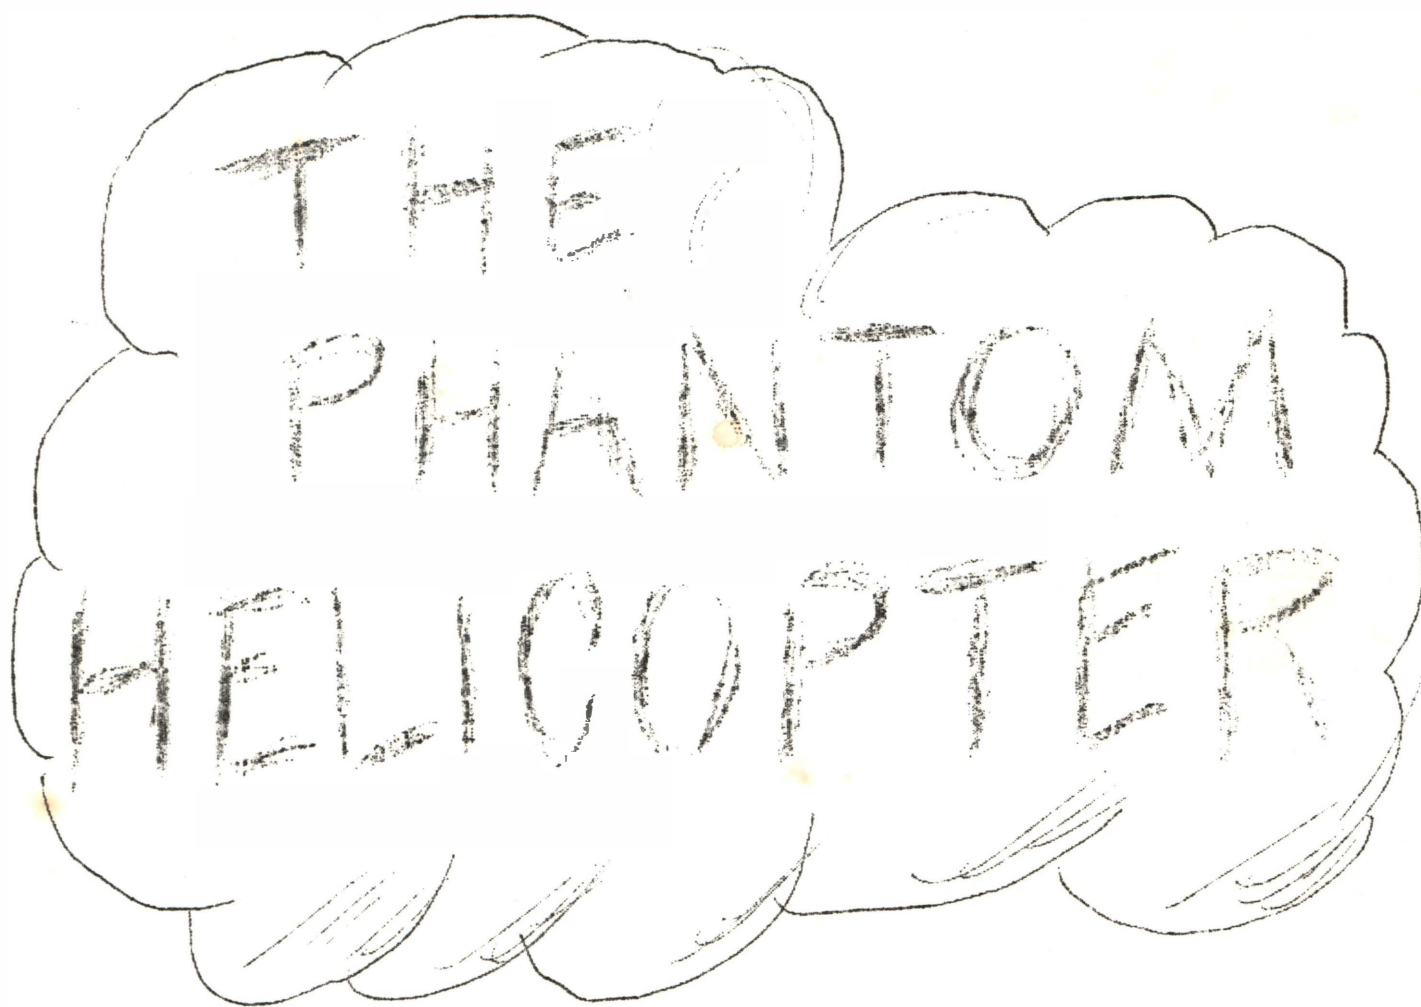 THE
PHANTOM
HELICOPTER